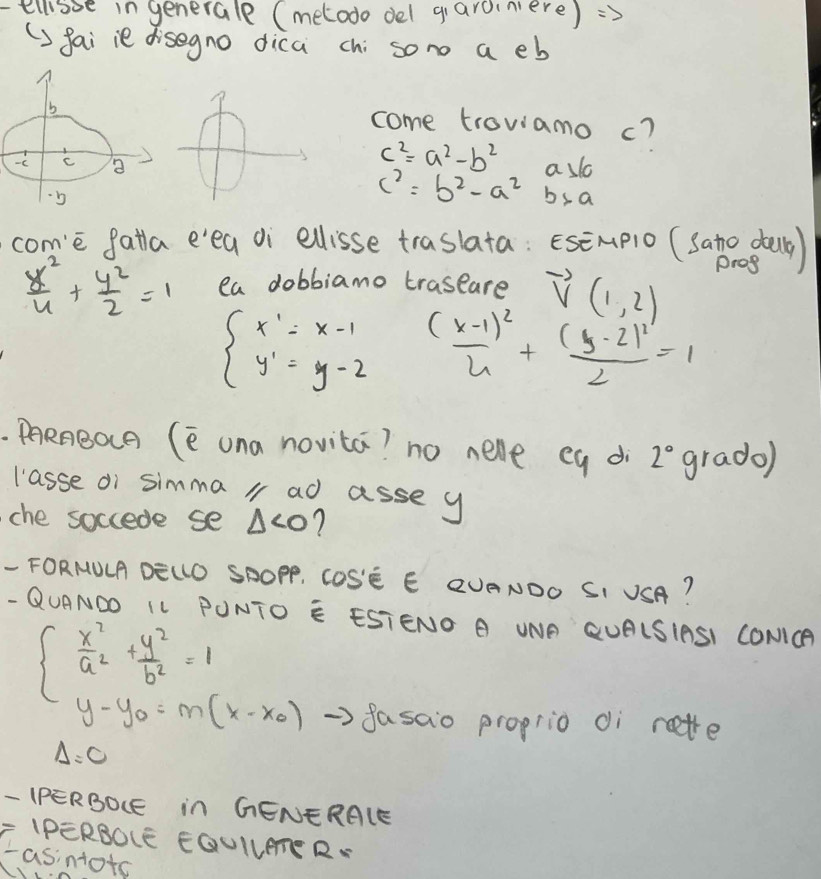 - ellisse in generale (metodo del giardiniere) =>
↳ fai il disegno dici chi sono a e b
b
-c c a
-b
come troviamo c?
c² = a² - b² a>b
c² = b² - a² b>a
com'è fatta l'eq di ellisse traslata: ESEMPIO (fatto dalla prof)
x²/4 + y²/2 = 1 la dobbiamo traslare V⃗ (1,2)
{ x' = x - 1
y' = y - 2
(x-1)²/4 + (y-2)²/2 = 1
- PARABOLA (è una novità? no nelle eq di 2° grado)
l'asse di simma // ad asse y
che soccede se Δ<0?
- FORMULA DELLO SDOPP. COS'È E QUANDO SI USA?
- QUANDO IL PUNTO È ESTENO A UNA QUALSIASI CONICA
{ x²/a² + y²/b² = 1
y - y₀ = m(x - x₀) → fascio proprio di rette
Δ=0
- IPERBOLE in GENERALE
= IPERBOLE EQUILATER
- asintoto